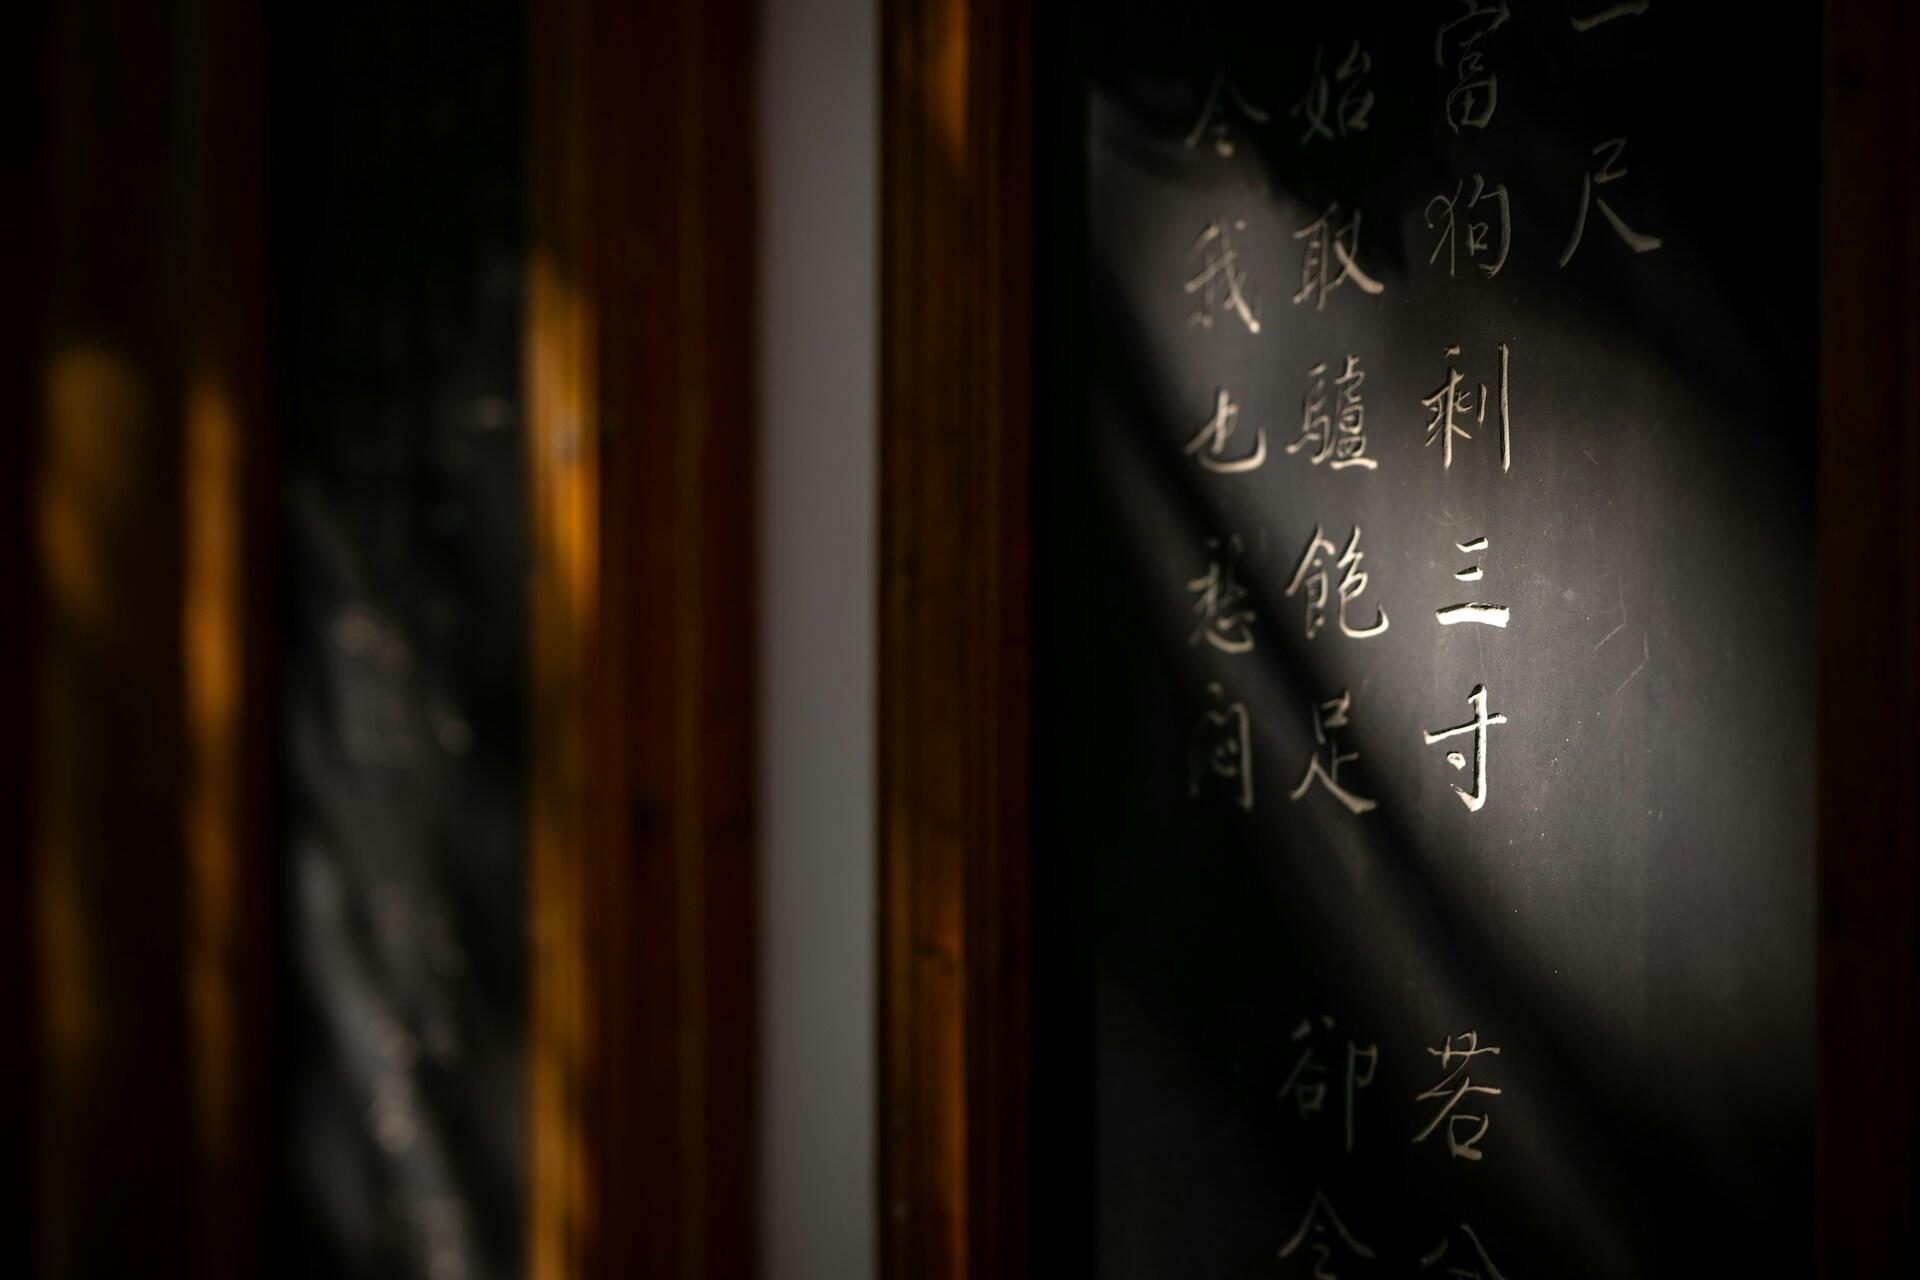 一尺
富狗剩三寸 若
始取驢飽足 卻令
令我也愁悶